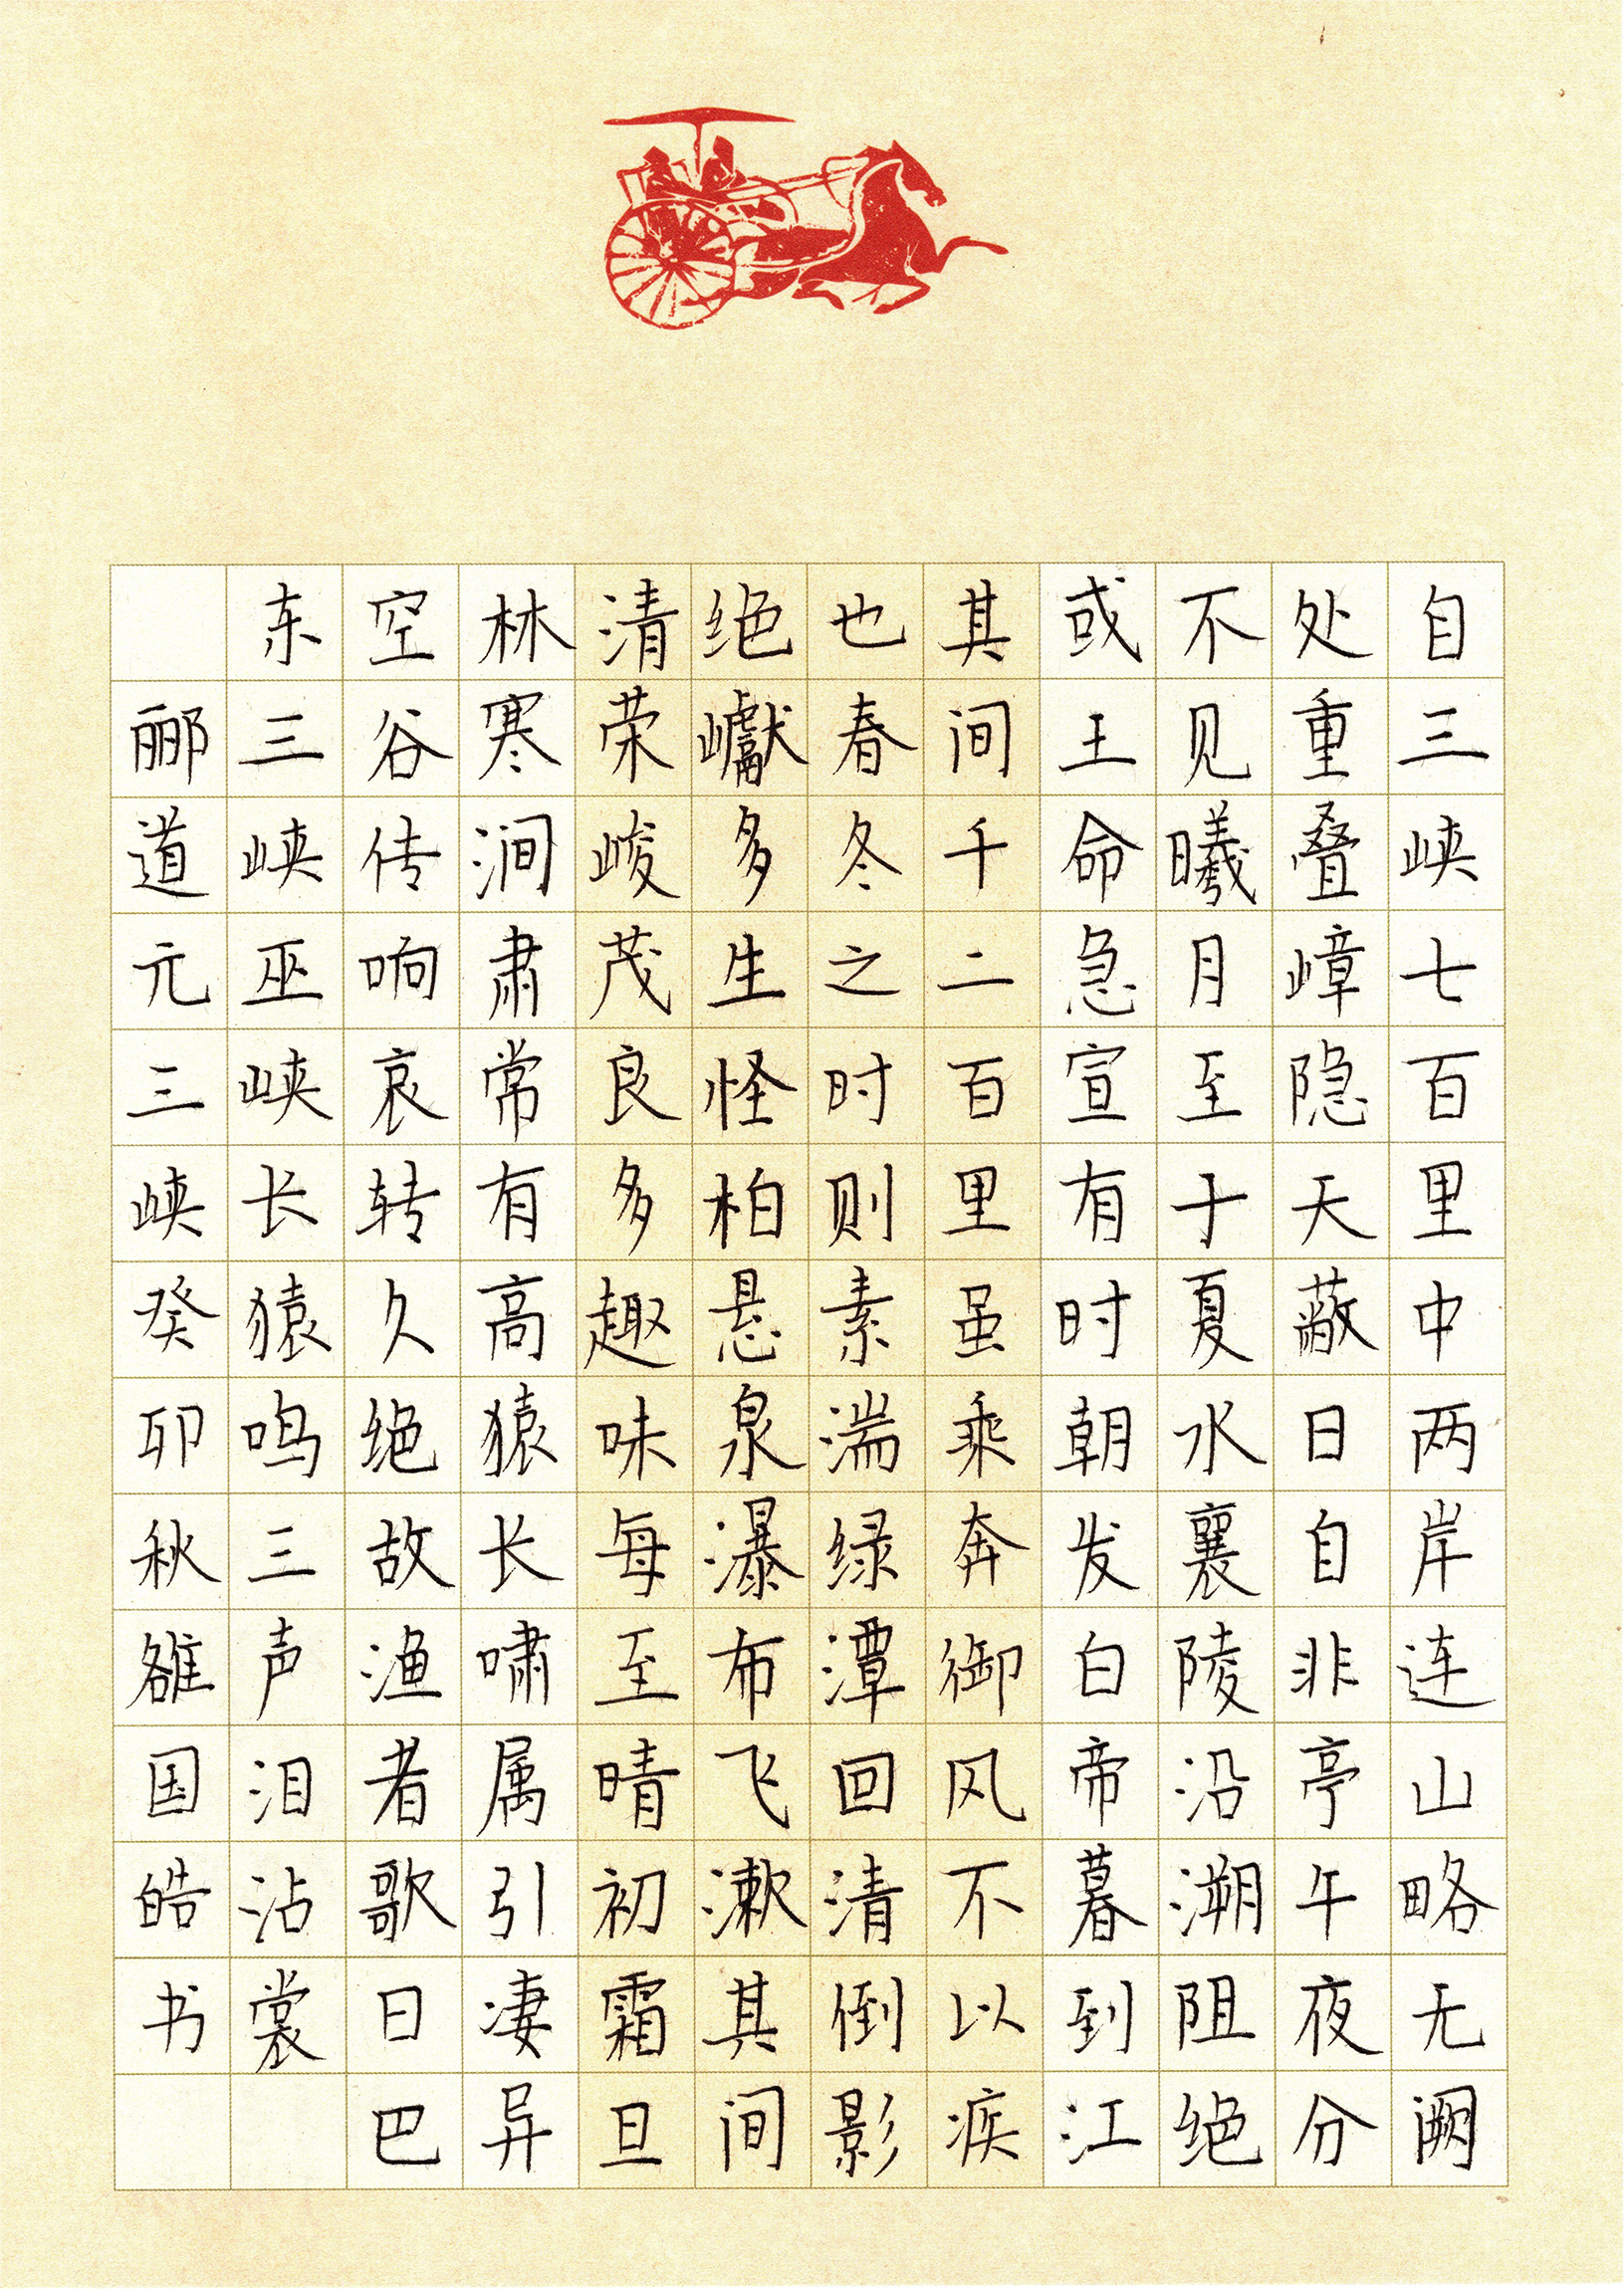 自三峡七百里中两岸连山略无阙
处重叠嶂隐天蔽日自非亭午夜分
不见曦月至于夏水襄陵沿溯阻绝
或王命急宣有时朝发白帝暮到江
其间千二百里虽乘奔御风不以疾
也春冬之时则素湍绿潭回清倒影
绝巘多生怪柏悬泉瀑布飞漱其间
清荣峻茂良多趣味每至晴初霜旦
林寒涧肃常有高猿长啸属引凄异
空谷传响哀转久绝故渔者歌曰巴
东三峡巫峡长猿鸣三声泪沾裳
郦道元三峡癸卯秋雒国皓书